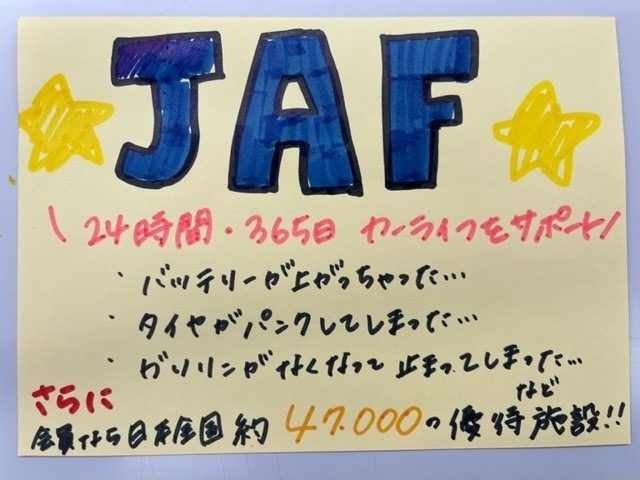 JAF
\ 24時間・365日 カーライフをサポート/
・バッテリーが上がっちゃった…
・タイヤがパンクしてしまった…
・ガソリンがなくなって止まってしまった…
など
さらに
会員なら日本全国約47.000の優待施設!!